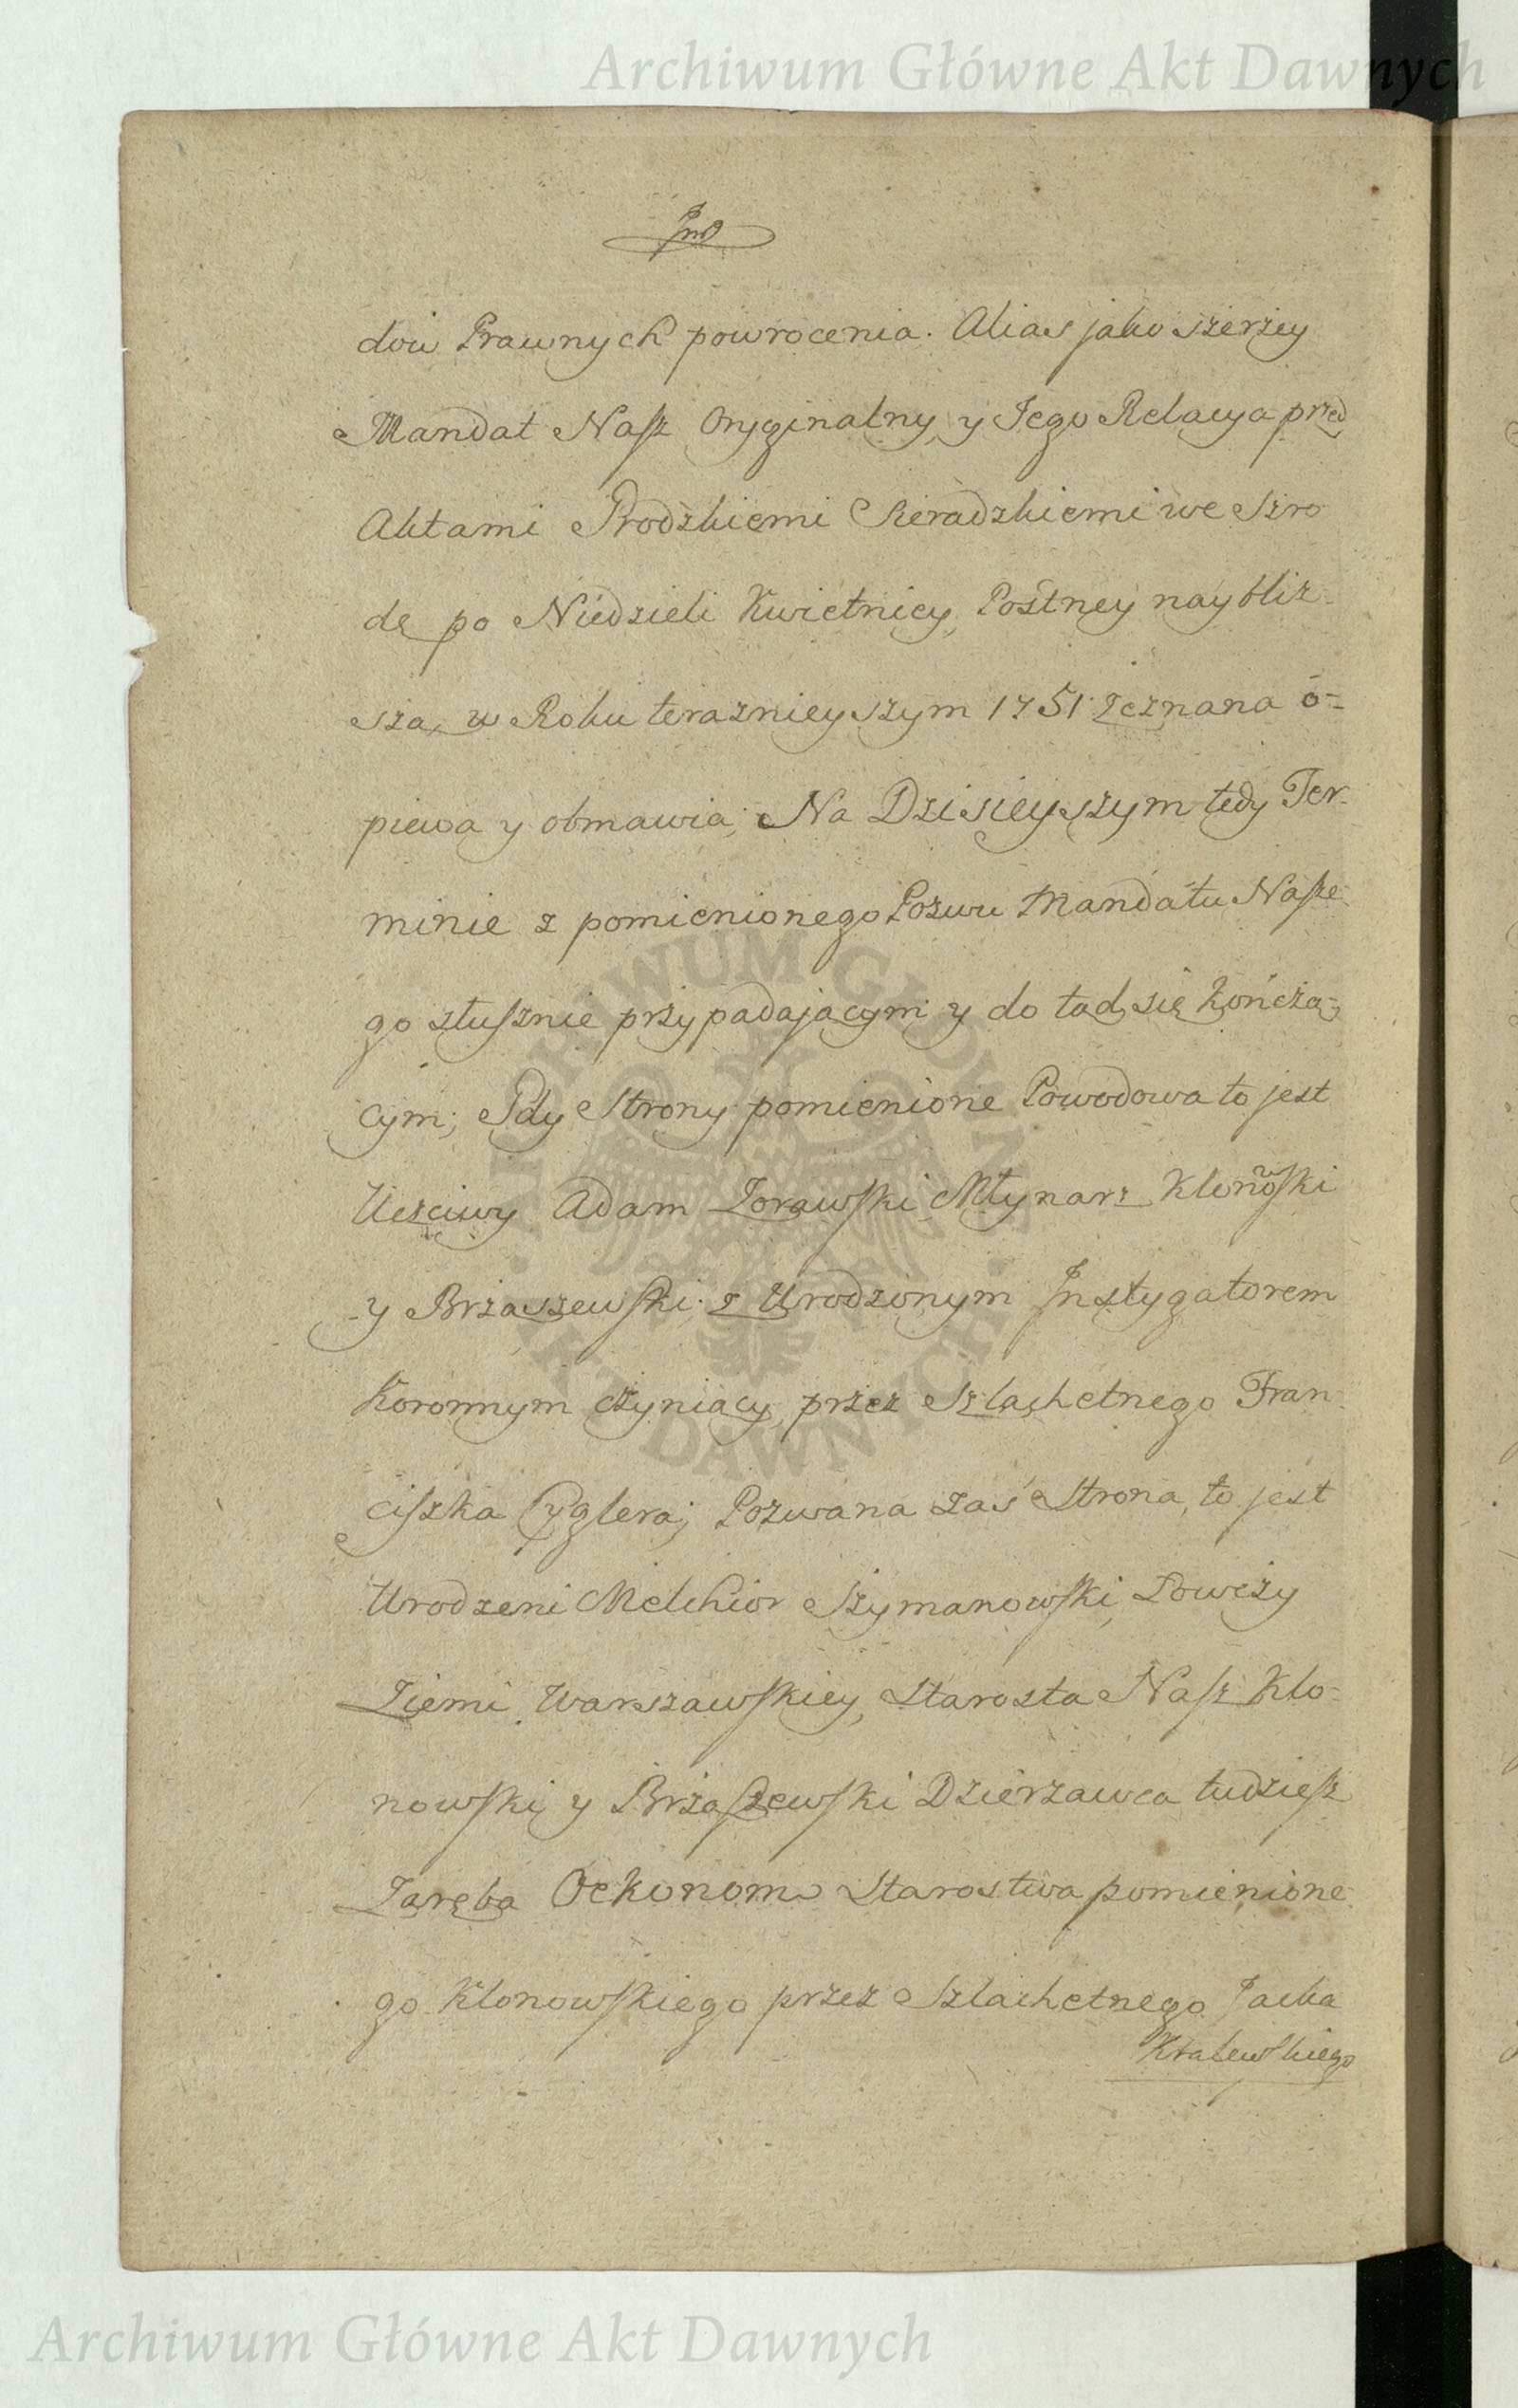 Archiwum Główne Akt Dawnych
dów Prawnych powrocenia. Alias jako szerzey
Mandat Nasz Oryginalny y Jego Relacya przed
Aktami Grodzkiemi Sieradzkiemi we Szro
dę po Niedzieli Kwietniey Postney naybliż-
szą w Roku teraznieyszym 1751 zeznana ó=
piewa y obmawia; Na Dzisieyszym tedy Ter-
minie z pomienionego Pozwu Mandatu Nasze-
go słusznie przypadającym y do tąd się kończą-
cym; Gdy Strony pomienione Powodowa to jest
Uczciwy Adam Zorawski Młynarz Klonowski
y Brzaszewski z Urodzonym Instygatorem
Koronnym czyniący, przez Szlachetnego Fran-
ciszka Cyglera; Pozwana zaś Strona, to jest
Urodzeni Melchior Szymanowski Łowczy
Ziemi Warszawskiey, Starosta Nasz Klo-
nowski y Brzaszewski Dzierzawca tudziesz
Zaręba Oekonom Starostwa pomienione-
go Klonowskiego przez Szlachetnego Jacka
Kralewskiego
ARCHIWUM GŁÓWNE · AKT DAWNYCH ·
Archiwum Główne Akt Dawnych